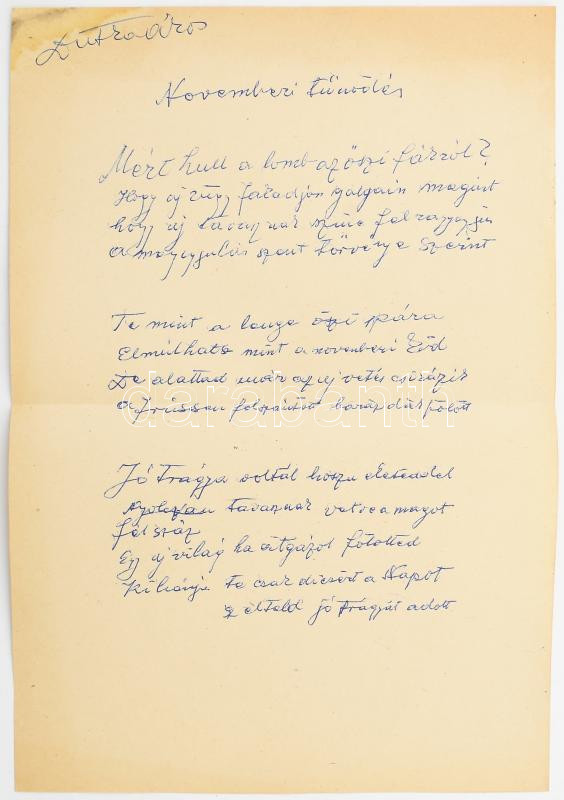 Novemberi Tűnődés
Mért hull a lomb az őszi fáról?
Hogy új rügy fakadjon galyain megint
hogy új tavasznak színe felragyogjon
a megújulás szent törvénye szerint
Te mint a lenge őszi pára
Elmúlható mint a novemberi
De alattad már az új vetés csirázik
a frissen felszántott barázdák fölött
Jó Trágya voltál hoszu életeddel
Tavasznak vetve a magot
fél száz
Egy új világ ha átgázol fölötted
Kihányja te csak dicsérd a Napot
s életed jó trágyát adott
darabanth